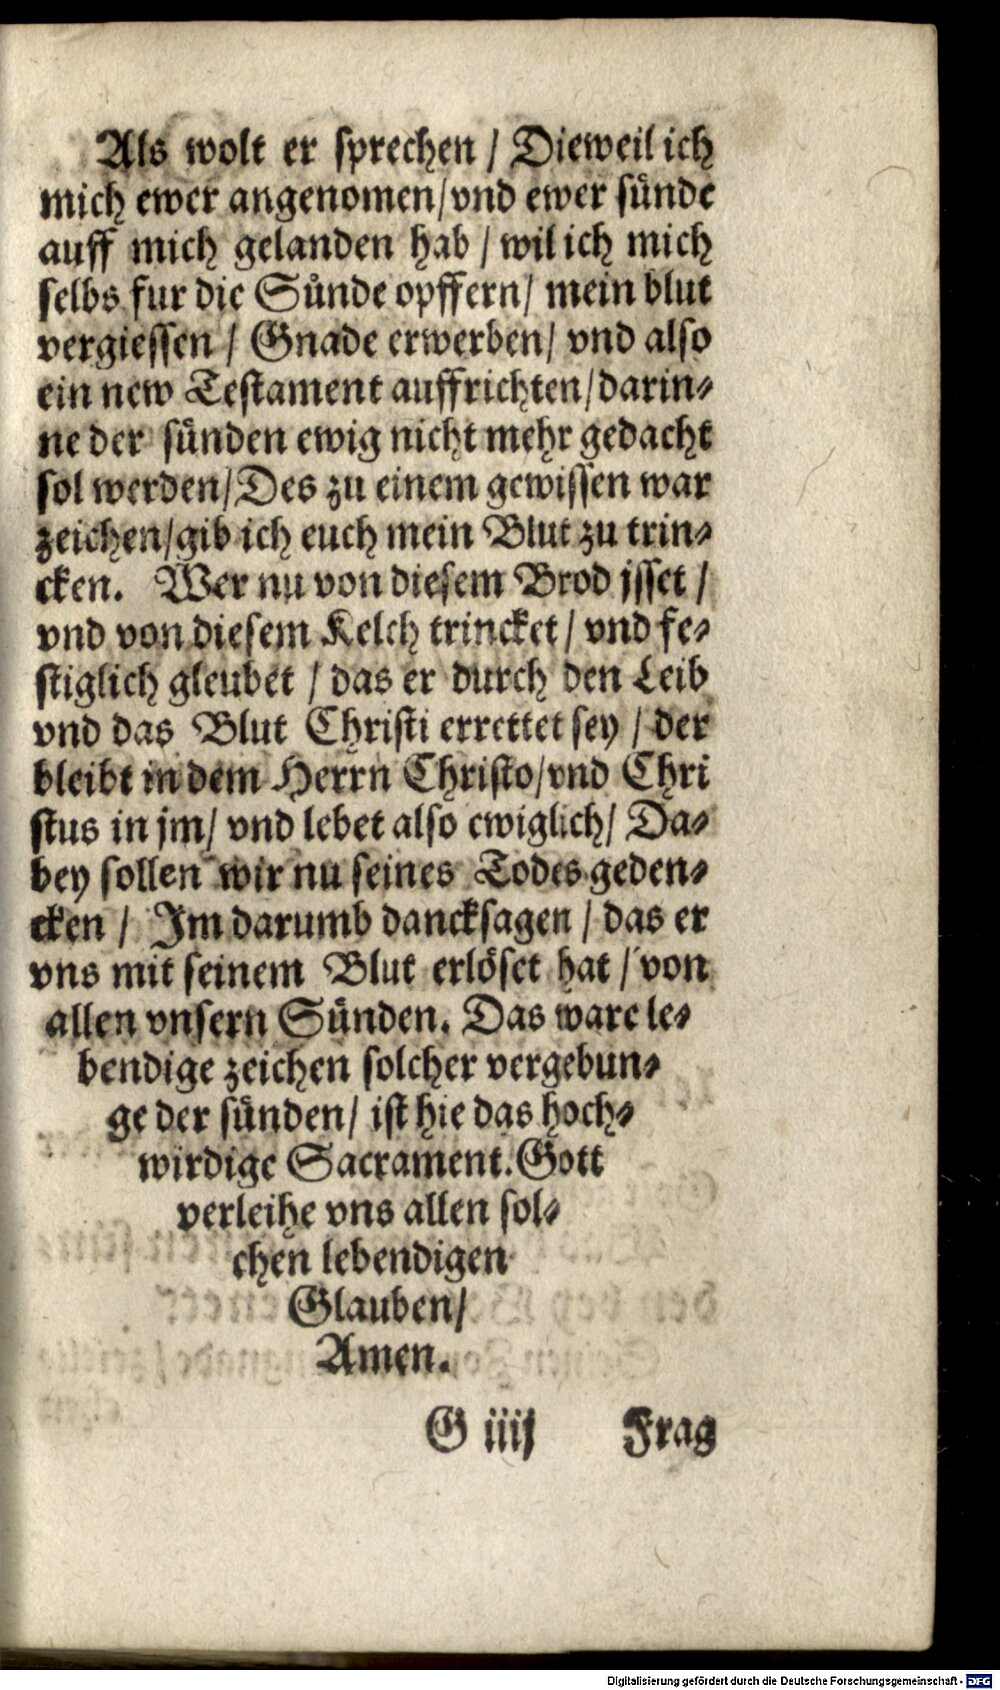 Als wolt er sprechen / Dieweil ich
mich ewer angenomen/vnd ewer sünde
auff mich gelanden hab / wil ich mich
selbs fur die Sünde opffern/ mein blut
vergiessen / Gnade erwerben/ vnd also
ein new Testament auffrichten/darin⸗
ne der sünden ewig nicht mehr gedacht
sol werden/Des zu einem gewissen war
zeichen/gib ich euch mein Blut zu trin⸗
cken. Wer nu von diesem Brod isset /
vnd von diesem Kelch trincket / vnd fe⸗
stiglich gleubet / das er durch den Leib
vnd das Blut Christi errettet sey / der
bleibt in dem Herrn Christo/vnd Chri
stus in jm/ vnd lebet also ewiglich/ Da⸗
bey sollen wir nu seines Todes geden⸗
cken / Im darumb dancksagen / das er
vns mit seinem Blut erlöset hat / von
allen vnsern Sünden. Das ware le⸗
bendige zeichen solcher vergebun⸗
ge der sünden/ ist hie das hoch⸗
wirdige Sacrament. Gott
verleihe vns allen sol⸗
chen lebendigen
Glauben/
Amen.
G iiij Frag
Digitalisierung gefördert durch die Deutsche Forschungsgemeinschaft - DFG